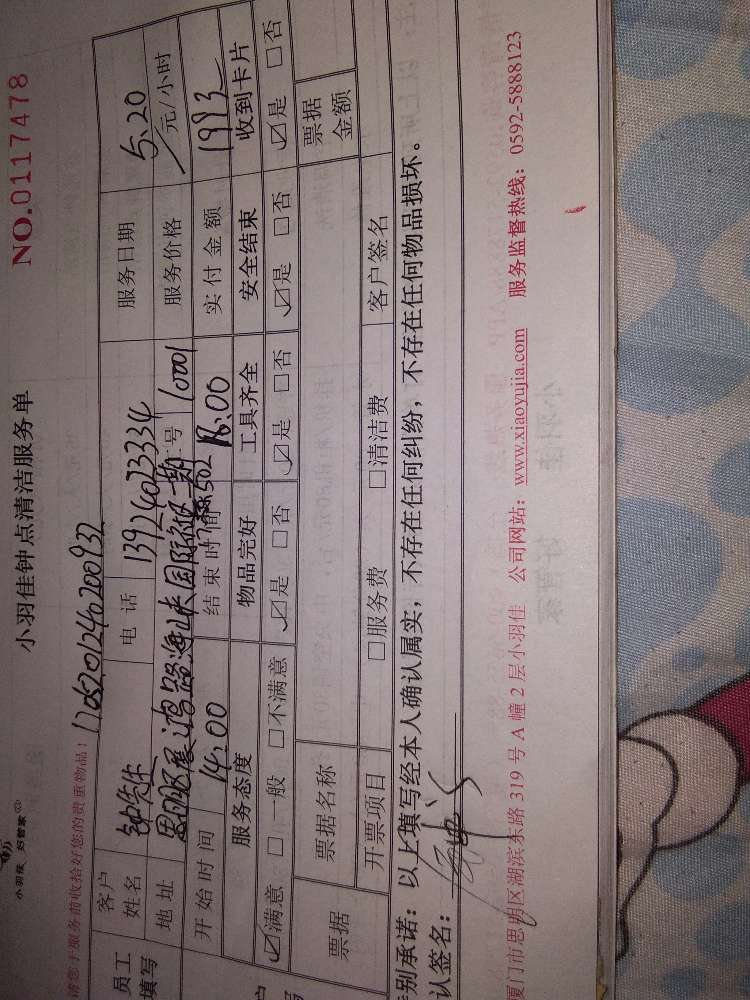 小羽佳 好管家
小羽佳钟点清洁服务单
NO.0117478
请您于服务前收拾好您的贵重物品:
员工
填写
客户
姓名
钟先生
电话
13924023334
服务日期
5.20
地址
号
服务价格
元/小时
开始时间
14:00
结束时间
18:00
实付金额
1993
服务态度
物品完好
工具齐全
安全结束
收到卡片
☑满意 □一般 □不满意
☑是 □否
☑是 □否
☑是 □否
☑是 □否
票据
票据名称
票据
金额
开票项目
□服务费
□清洁费
客户签名
别承诺:以上填写经本人确认属实,不存在任何纠纷,不存在任何物品损坏。
认签名:
厦门市思明区湖滨东路 319 号 A 幢 2 层小羽佳 公司网站:www.xiaoyujia.com 服务监督热线:0592-5888123